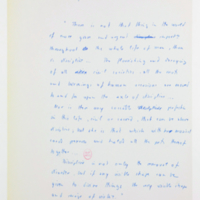 "There is not that thing in the world
of more grave and urgent importance
throughout the whole life of man, than
is discipline. The flourishing and decaying
of all civil societies, all the moments
and turnings of human occasions are moved
to and fro upon the axle of discipline.
Nor is there any sociable perfection
in this life, civil or sacred, that can be above
discipline; but she is that which with her
cords preserves and holds all the parts thereof
together."
Discipline is not only the removal of
disorder, but if any
the very visible shape
and image of virtue."